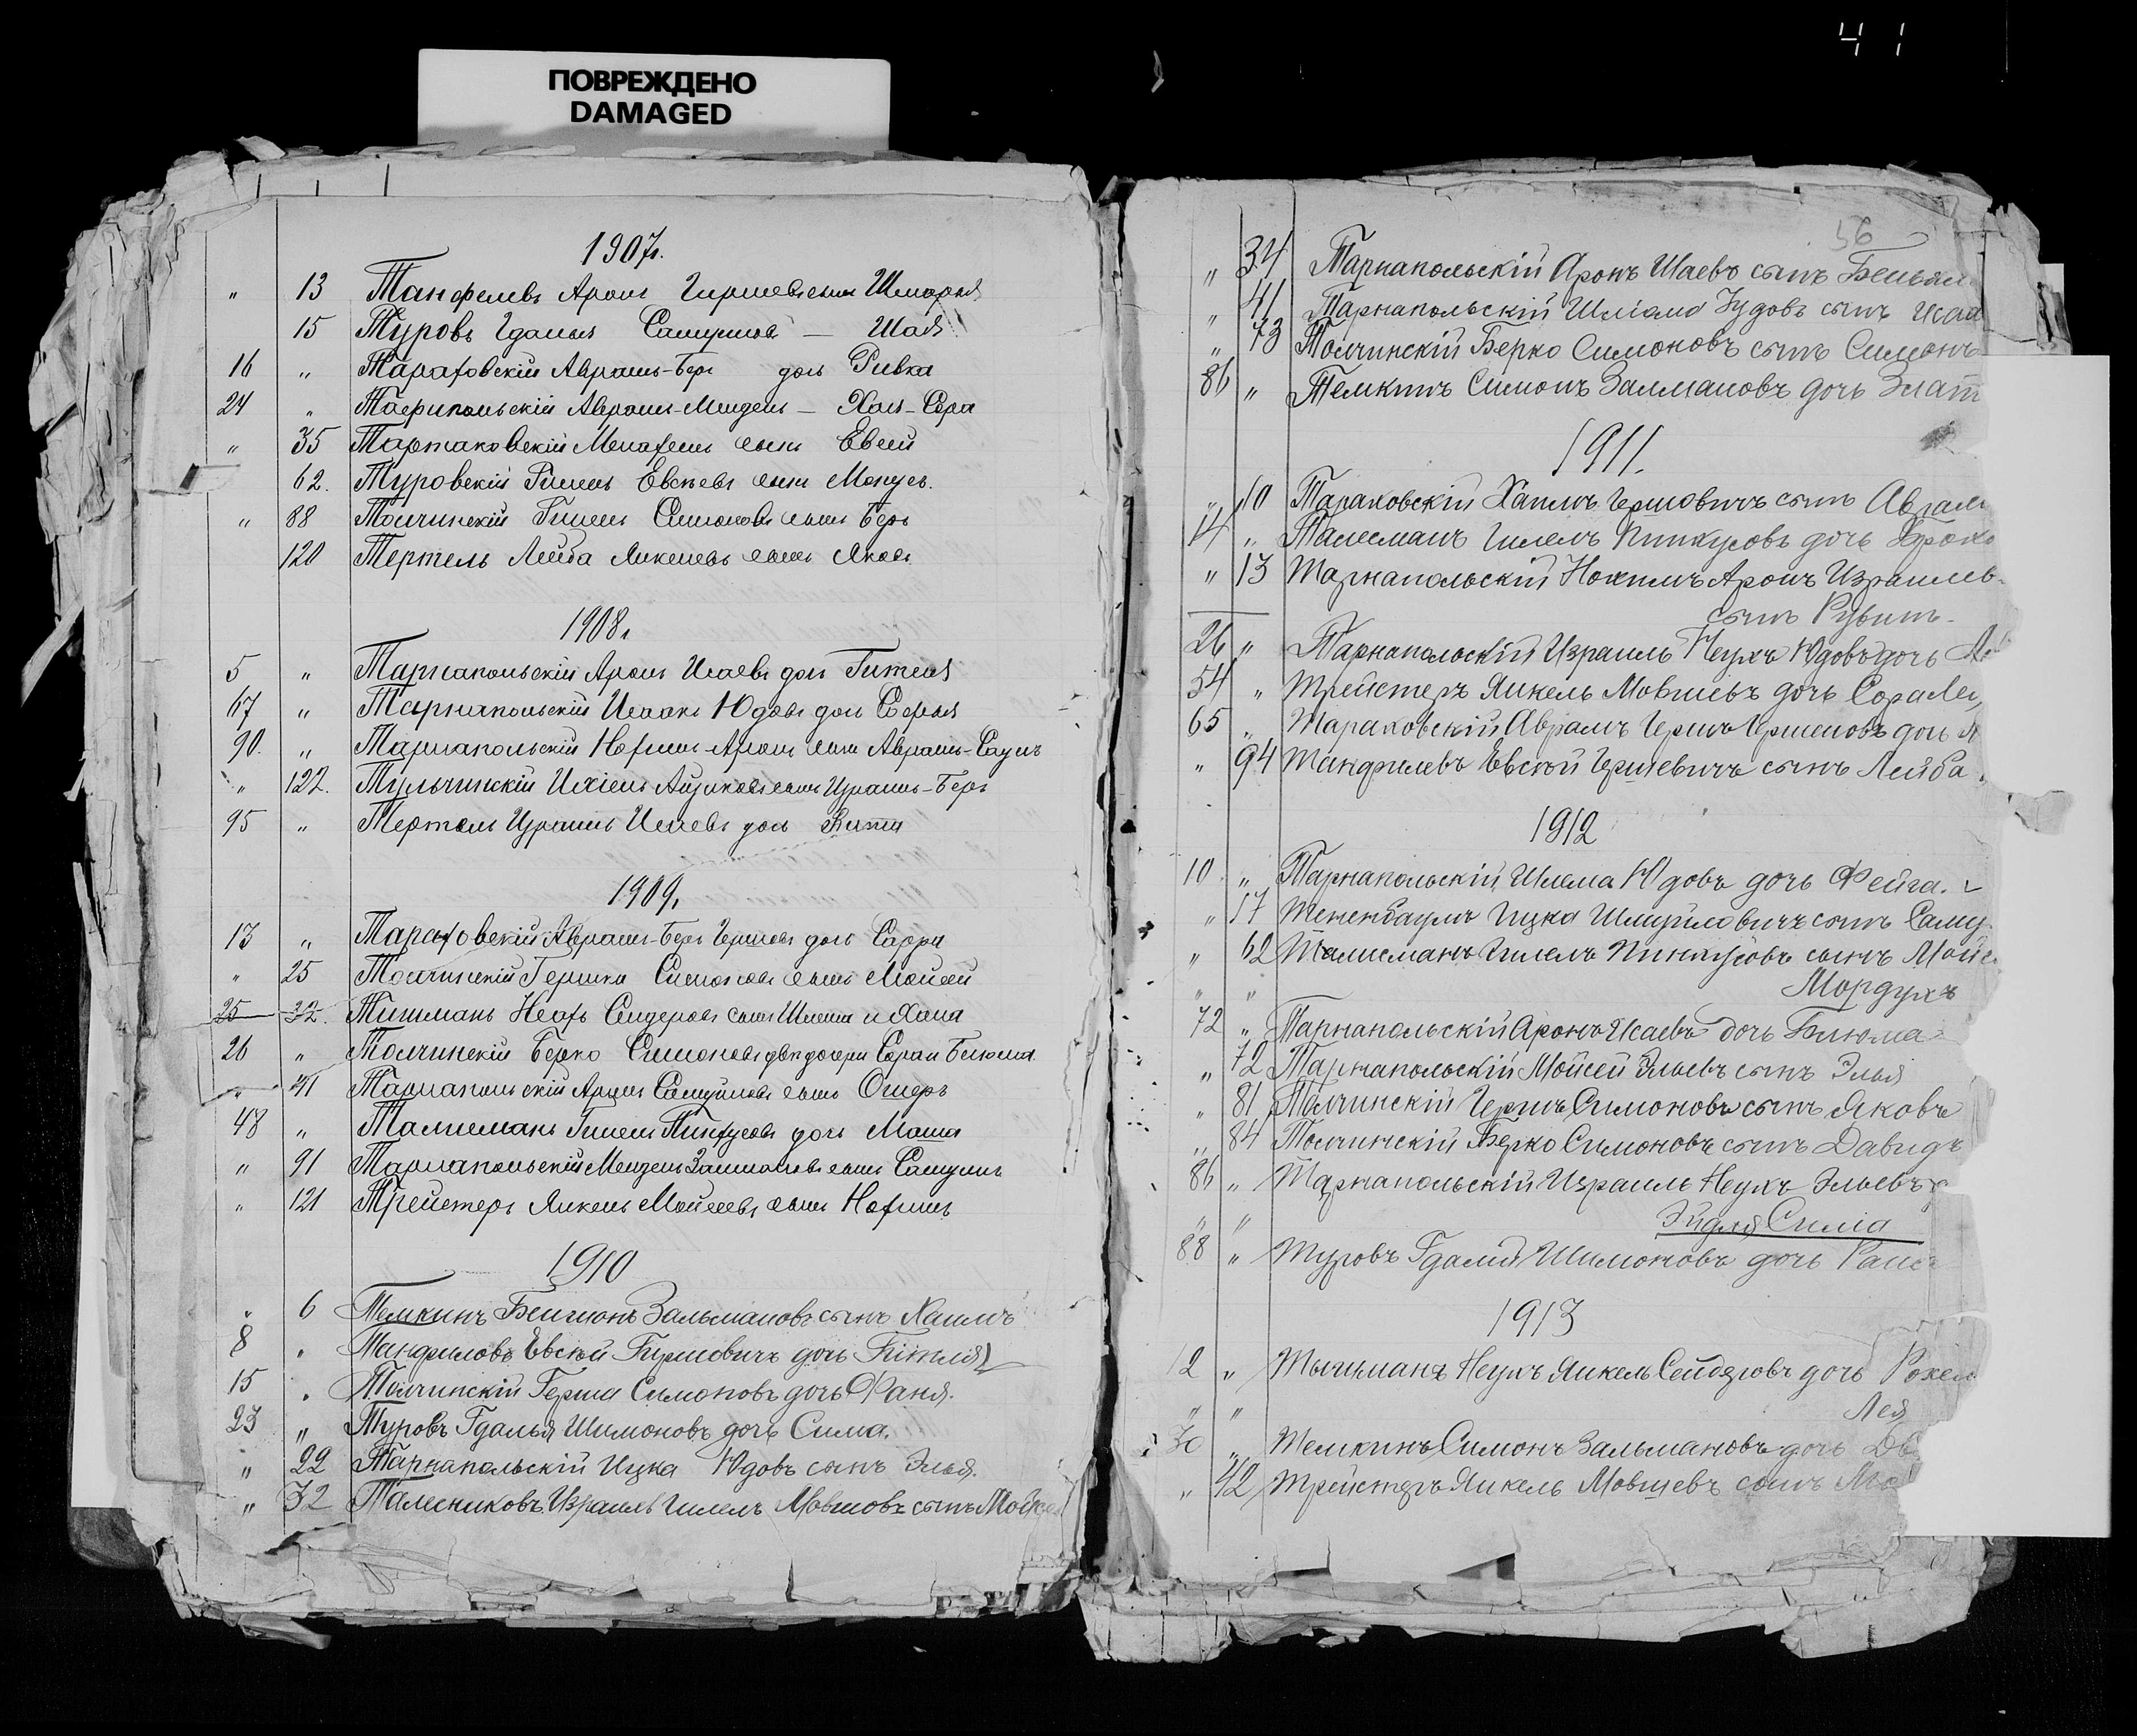 41
ПОВРЕЖДЕНО
DAMAGED
1907г.
" 13 Танфилевъ Аронъ Гиршевъ сынъ Шмарья
15 Туровъ Гдалья Самуиловъ — Шая
16 " Тараховскій Аврамъ-Беръ дочь Ривка
24 " Тарнапольскій Аврамъ-Мендель — Хая-Сора
" 35 Тартаковскій Менахемъ сынъ Евсей
62. Туровскій Гилель Евсѣевъ сынъ
" 88 Толчинскій Гилель Симоновъ сынъ Беръ
120 Тертель Лейба Янкелевъ сынъ Яковъ
1908г.
5 " Тарнапольскій Аронъ Исаевъ дочь Гителя
67 " Тарнапольскій Исаакъ Юдовъ дочь
90. " Тарнапольскій Нохимъ-Аронъ сынъ Аврамъ-Саулъ
" 122. Тульчинскій Ихіель сынъ Израиль-Беръ
95 " Тертель Израиль Исаевъ дочь
1909г.
13 " Тараховскій Аврамъ-Беръ Гершовъ дочь Сарра
" 25 Толчинскій Гершко Симоновъ сынъ Мойсей
25 32. Тишманъ Неахъ Сендеровъ сынъ Шлема и Хана
26 " Толчинскій Берко Симоновъ двѣ дочери Сора и Блюма
" 41 Тарнапольскій Аронъ Самуиловъ сынъ Ошеръ
48 " Талисманъ Гилель Пинхусовъ дочь Маша
" 91 Тарнапольскій Мендель Залмановъ сынъ Самуилъ
" 121 Трейстеръ Янкель Мойсеевъ сынъ Нохимъ
1910
" 6 Темкинъ Бенционъ Зальмановъ сынъ Хаимъ
8 " Танфиловъ Евсѣй Гиршовичъ дочь Гитля
15 " Толчинскій Герша Симоновъ дочь Фаня.
23 " Туровъ Гдалья Шимоновъ дочь Сима.
" 22 Тарнапольскій Ицка Юдовъ сынъ Элья.
" 32 Талесниковъ Израиль Гилель Мовшовъ сынъ Мойсе
56
" 34 Тарнапольскій Аронъ Шаевъ сынъ Беньям
" 41 Тарнапольскій Шліома Іудовъ сынъ Исаа
" 73 Толчинскій Берко Симоновъ сынъ Симонъ
86 " Темкинъ Симонъ Залмановъ дочь Злат
1911.
" 10 Тараковскій Хаимъ Гершовичъ сынъ Аврам
14 " Талесманъ Гилель Пинкусовъ дочь Броха
" 13 Тарнапольскій Нохимъ Аронъ Израилев-
сынъ Рувинъ.
26 " Тарнапольскій Израиль Неухъ Юдовъ дочь
54 " Трейстеръ Янкель Мовшевъ дочь Сора Ле
65 " Тараковскій Аврамъ Гершъ Гершковъ дочь
" 94 Танфилевъ Евсѣй Гершевичъ сынъ Лейба
1912
10. " Тарнапольскій Шлема Юдовъ дочь Фейга.
" 17 Тененбаумъ Ицка Шмуйловичъ сынъ Саму
" 62 Талисманъ Гилель Пинкусовъ сынъ Мойс
" " Мордухъ
72 " Тарнапольскій Аронъ Исаевъ дочь Блюма
" 72 Тарнапольскій Мойсей Эльевъ сынъ Элья
" 81 Толчинскій Гершъ Симоновъ сынъ Яковъ
" 84 Толчинскій Берко Симоновъ сынъ Давидъ
86 " Тарнапольскій Израиль Неухъ Эльевъ
" " Эйдля Сима
88 " Туровъ Гдалій Шимоновъ дочь
1913
12 " Тышманъ Неухъ Янкель Сендеровъ дочь Рохел
" " Лея
30 " Темкинъ Симонъ Зальмановъ дочь Дв
" 42 Трейстеръ Янкель Мовшевъ сынъ Мо